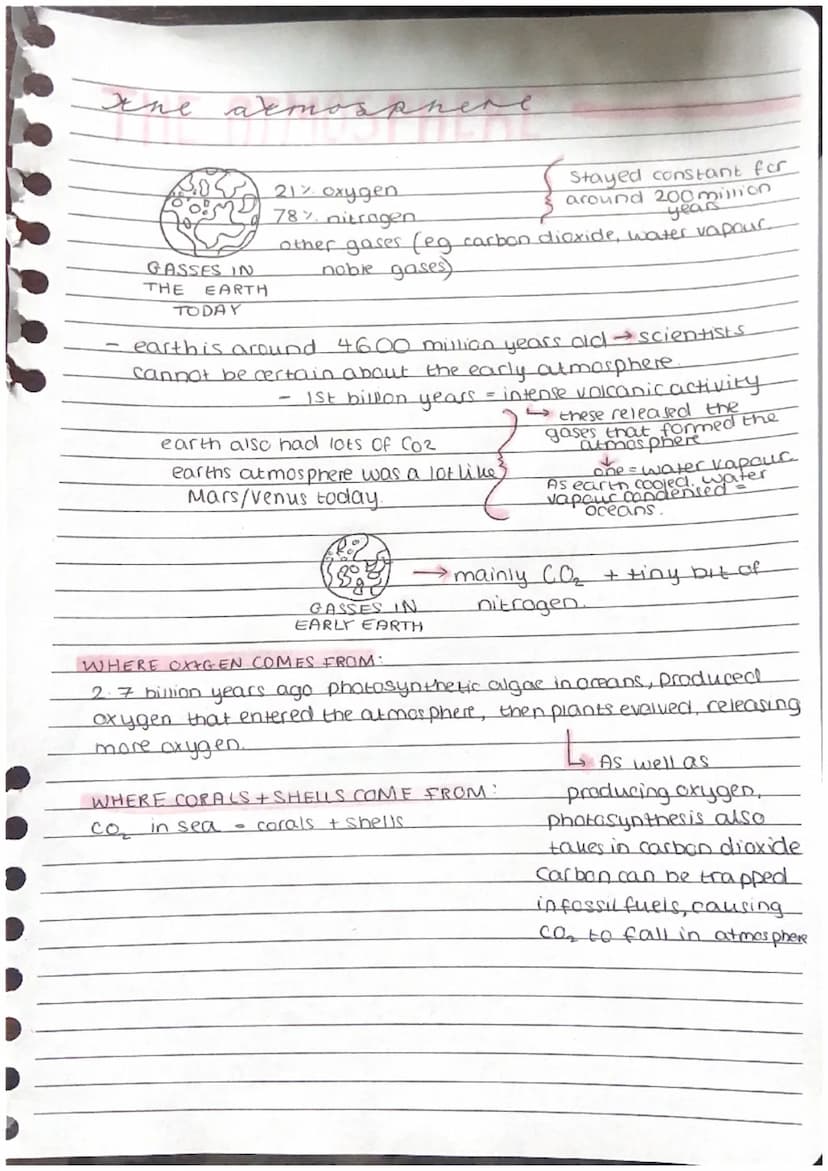 the atmosphere
THE ATMOSPHERE
21% oxygen
78% nitrogen
other gases (eg carbon dioxide, water vapour
noble gases)
Stayed constant for
around 200 million
years
GASSES IN
THE EARTH
TODAY
- earth is around 4600 million years old → scientists
cannot be certain about the early atmosphere
- 1st billion years = intense volcanic activity
↳ these released the
gases that formed the
atmosphere
↓
one = water vapour
As earth cooled, water
vapour condensed =
oceans.
earth also had lots of CO2
earths atmosphere was a lot like
Mars/Venus today.
GASSES IN
EARLY EARTH
→ mainly CO₂ + tiny bit of
nitrogen.
WHERE OXYGEN COMES FROM:
2.7 billion years ago photosynthetic algae in oceans, produced
oxygen that entered the atmosphere, then plants evolved, releasing
more oxygen.
↳ As well as
producing oxygen,
photosynthesis also
takes in carbon dioxide
Carbon can be trapped
in fossil fuels, causing
CO₂ to fall in atmosphere
WHERE CORALS + SHELLS COME FROM:
CO₂ in sea = corals + shells